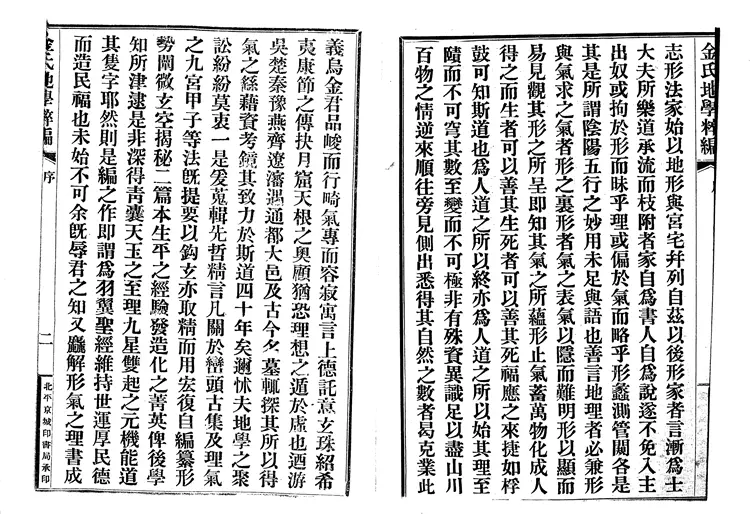 金氏地學粹編
序
志形法家始以地形與宮宅幷列自茲以後形家者言漸爲士
大夫所樂道承流而枝附者家自爲書人自爲說遂不免入主
出奴或拘於形而昧乎理或偏於氣而略乎形蠡測管闚各是
其是所謂陰陽五行之妙用未足與語也善言地理者必兼形
與氣求之氣者形之裏形者氣之表氣以隱而難明形以顯而
易見觀其形之所呈即知其氣之所蘊形止氣蓄萬物化成人
得之而生者可以善其生死者可以善其死福應之來捷如桴
鼓可知斯道也爲人道之所以終亦爲人道之所以始其理至
賾而不可窮其數至變而不可極非有殊資異識足以盡山川
百物之情逆來順往旁見側出悉得其自然之數者曷克業此
義烏金君品峻而行畸氣專而容寂寓言上德託意玄珠紹希
夷康節之傳抉月窟天根之奧顧猶恐理想之遁於虛也迺游
吳楚秦豫燕齊遼瀋遇通都大邑及古今名墓輒探其所以得
氣之繇藉資考鏡其致力於斯道四十年矣邇怵夫地學之衆
訟紛紛莫衷一是爰蒐輯先哲精言凡關於巒頭古集及理氣
之九宮甲子等法旣提要以鈎玄亦取精而用宏復自編纂形
勢闡微玄空揭秘二篇本生平之經驗發造化之菁英俾後學
知所津逮是非深得靑囊天玉之至理九星雙起之元機能道
其隻字耶然則是編之作卽謂爲羽翼聖經維持世運厚民德
而造民福也未始不可余旣辱君之知又龝解形氣之理書成
金氏地學粹編
序
二
北平京城印書局承印